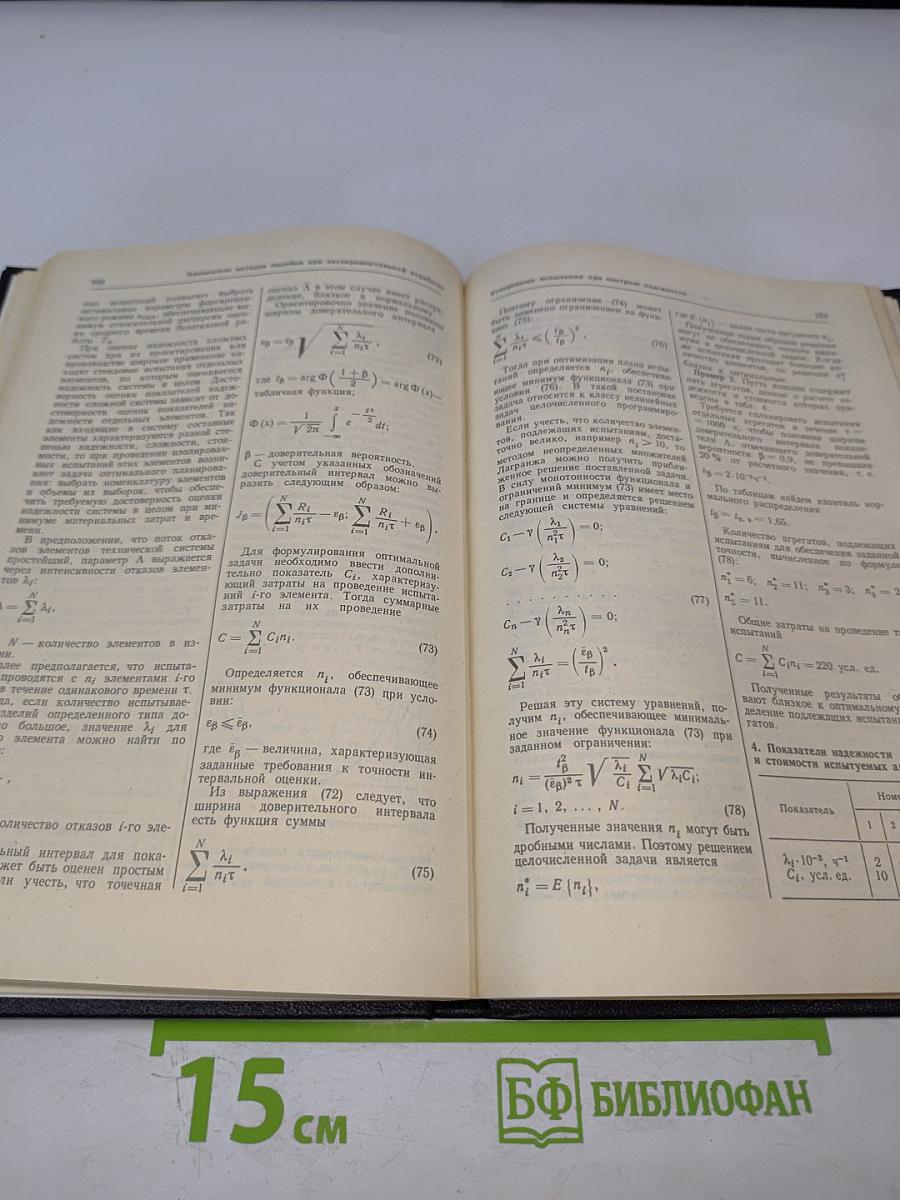 Применение методов подобия при экспериментальной отработке
ных испытаний позволяет выбрать
оптимальные параметры форсирован-
ного режима обеспечивающие ми-
нимум относительной дисперсии оцен-
ки среднего времени безотказной ра-
боты
При оценке надежности сложных
систем при их проектировании или
производстве широкое применение на-
ходят стендовые испытания отдельных
элементов, по которым оценивается
надежность системы в целом. Досто-
верность оценки показателей надеж-
ности сложной системы зависит от до-
стоверности оценок показателей на-
дежности отдельных элементов. Так
как входящие в систему составные
элементы характеризуются разной сте-
пенью надежности, сложности, стои-
мости, то при проведении изолирован-
ных испытаний этих элементов возни-
кает задача оптимального планирова-
ния: выбрать номенклатуру элементов
и объемы их выборок, чтобы обеспе-
чить требуемую достоверность оценки
надежности системы в целом при ми-
нимуме материальных затрат и вре-
мени.
В предположении, что поток отка-
зов элементов технической системы
простейший, параметр Λ выражается
через интенсивности отказов элемен-
тов λi:
= ∑ᵢ₌₁ᴺ λi,
N — количество элементов в из-
нии.
лее предполагается, что испыта-
проводятся с ni элементами i-го
в течение одинакового времени τ.
да, если количество испытывае-
зделий определенного типа до-
но большое, значение λi для
о элемента можно найти по
е:
оличество отказов i-го эле-
ьный интервал для пока-
жет быть оценен простым
ли учесть, что точечная
оценка Λ̂ в этом случае имеет распре-
деление, близкое к нормальному.
Ориентировочно значение половины
ширины доверительного интервала
εβ = tβ √(∑ᵢ₌₁ᴺ λi/(niτ)), (72)
где tβ = arg Φ((1+β)/2) = arg Φ(x)—
табличная функция;
Φ(x) = 1/√2π ∫₋∞ˣ e^(−t²/2) dt;
β — доверительная вероятность.
С учетом указанных обозначений
доверительный интервал можно вы-
разить следующим образом:
Jβ = (∑ᵢ₌₁ᴺ Ri/(niτ) − εβ; ∑ᵢ₌₁ᴺ Ri/(niτ) + εβ).
Для формулирования оптимальной
задачи необходимо ввести дополни-
тельно показатель Ci, характеризу-
ющий затраты на проведение испыта-
ний i-го элемента. Тогда суммарные
затраты на их проведение
C = ∑ᵢ₌₁ᴺ Cini. (73)
Определяется ni, обеспечивающее
минимум функционала (73) при усло-
вии:
εβ ⩽ ε̄β, (74)
где ε̄β — величина, характеризующая
заданные требования к точности ин-
тервальной оценки.
Из выражения (72) следует, что
ширина доверительного интервала
есть функция суммы
∑ᵢ₌₁ᴺ λi/(niτ). (75)
Ускоренные испытания при контроле надежности
Поэтому ограничение (74) может
быть заменено ограничением на функ-
цию (75):
∑ᵢ₌₁ᴺ λi/(niτ) ⩽ (ε̄β/tβ)². (76)
Тогда при оптимизации плана испы-
таний определяется ni, обеспечива-
ющее минимум функционала (73) при
условии (76). В такой постановке
задача относится к классу нелинейных
задач целочисленного программиро-
вания.
Если учесть, что количество элемен-
тов, подлежащих испытаниям, доста-
точно велико, например ni > 10, то
методом неопределенных множителей
Лагранжа можно получить прибли-
женное решение поставленной задачи.
В силу монотонности функционала и
ограничений минимум (73) имеет место
на границе и определяется решением
следующей системы уравнений:
C₁ − γ (λ₁/(n₁²τ)) = 0;
C₂ − γ (λ₂/(n₂²τ)) = 0;
. . . . . . . . . . (77)
Cn − γ (λn/(nn²τ)) = 0;
∑ᵢ₌₁ᴺ λi/(niτ) = (ε̄β/tβ)².
Решая эту систему уравнений, по-
лучим ni, обеспечивающее минималь-
ное значение функционала (73) при
заданном ограничении:
ni = tβ²/((ε̄β)²τ) √(λi/Ci) ∑ᵢ₌₁ᴺ √λiCi;
i = 1, 2, ..., N. (78)
Полученные значения ni могут быть
дробными числами. Поэтому решением
целочисленной задачи является
ni* = E {ni},
где E {ni} — целая часть аргумента ni.
Полученные таким образом решения
могут не обеспечить точного мини-
мума в целочисленной задаче. Когда
же испытаниям подлежит большое ко-
личество элементов, то решения ni*
близки к оптимальным.
Пример 3. Пусть изделие содержит
пять агрегатов, данные о расчете на-
дежности и стоимости которых при-
ведены в табл. 4.
Требуется спланировать испытания
отдельных агрегатов в течение τ =
= 1000 ч, чтобы половина ширины
доверительного интервала показа-
теля Λ, отвечающего доверительной
вероятности β = 0,9, не превышала
20 % от расчетного значения, т. е.
По таблицам найдем квантиль нор-
мального распределения
tβ = t₀,₉ = 1,65.
Количество агрегатов, подлежащих
испытаниям для обеспечения заданной
точности, вычисленное по формуле
(78):
n₁* = 6; n₂* = 11; n₃* = 3; n₄* = 2
n₅* = 11.
Общие затраты на проведение
испытаний
C = ∑ᵢ₌₁ᴺ Cini = 220 усл. ед.
Полученные результаты об
вают близкое к оптимальному
деление подлежащих испытани
гатов.
4. Показатели надежности
и стоимости испытуемых а
Показатель
Номе
1 2
λi·10⁻³, ч⁻¹ 2
Ci, усл. ед. 10
15 см
БФ БИБЛИОФАН